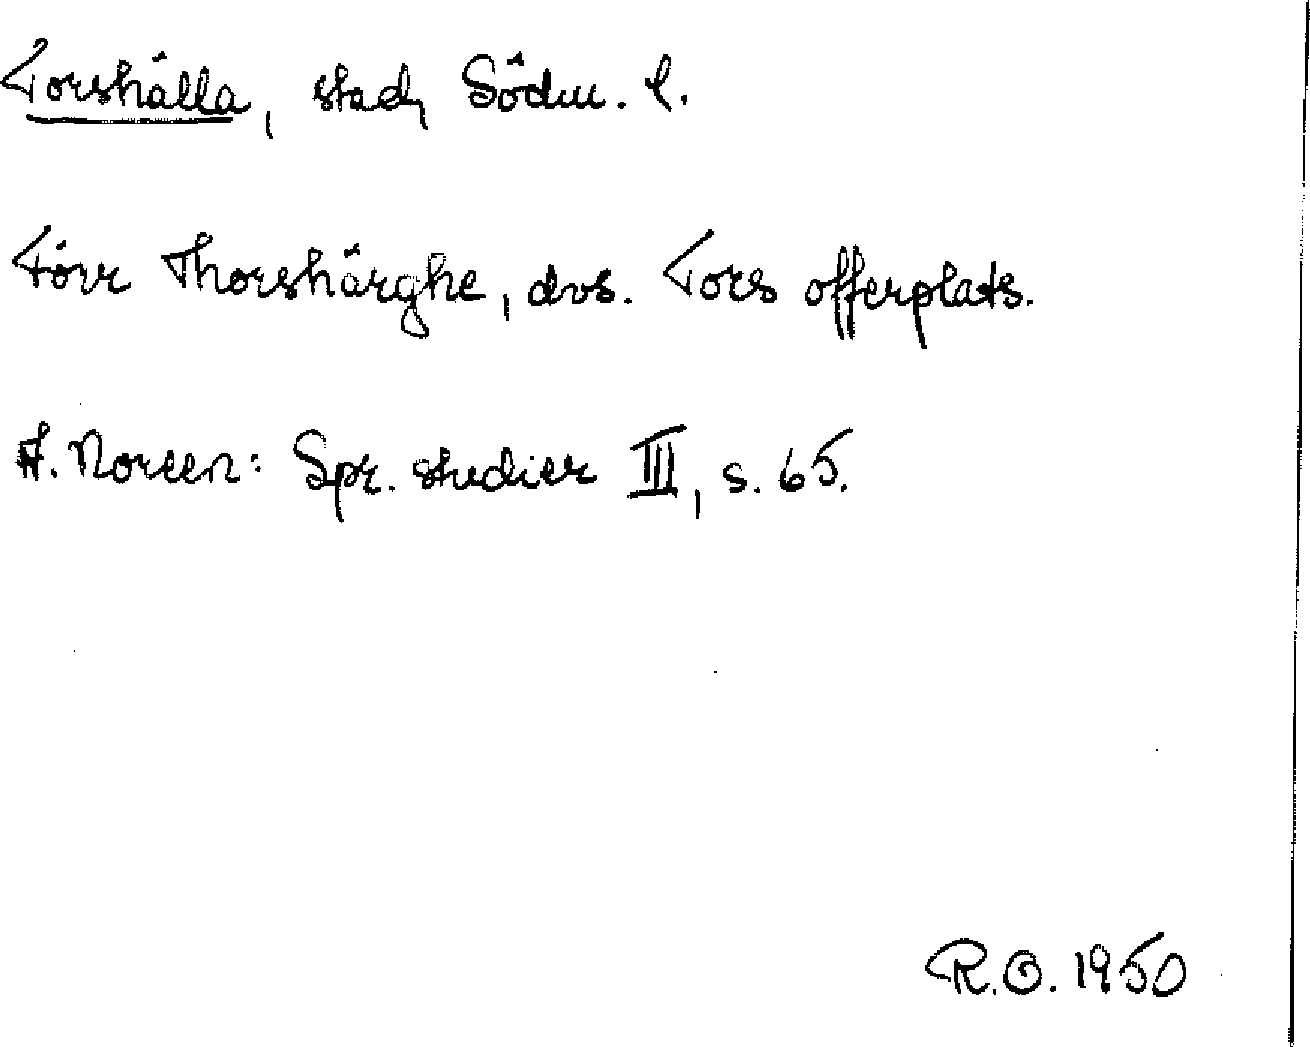 Torshälla, stad, Södm. l.
Förr Thorshärghe, dvs. Tors offerplats.
A. Noreen: Spr. studier III, s. 65.
R.O. 1950